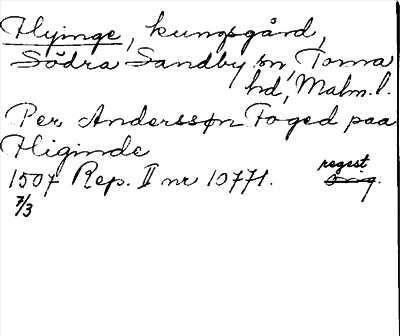 Flyinge, kungsgård,
Södra Sandby sn, Torna
hd, Malm. l.
Per Anderssøn Foged paa
Fliginde
1507 Rep. II nr 10771. regest
7/3